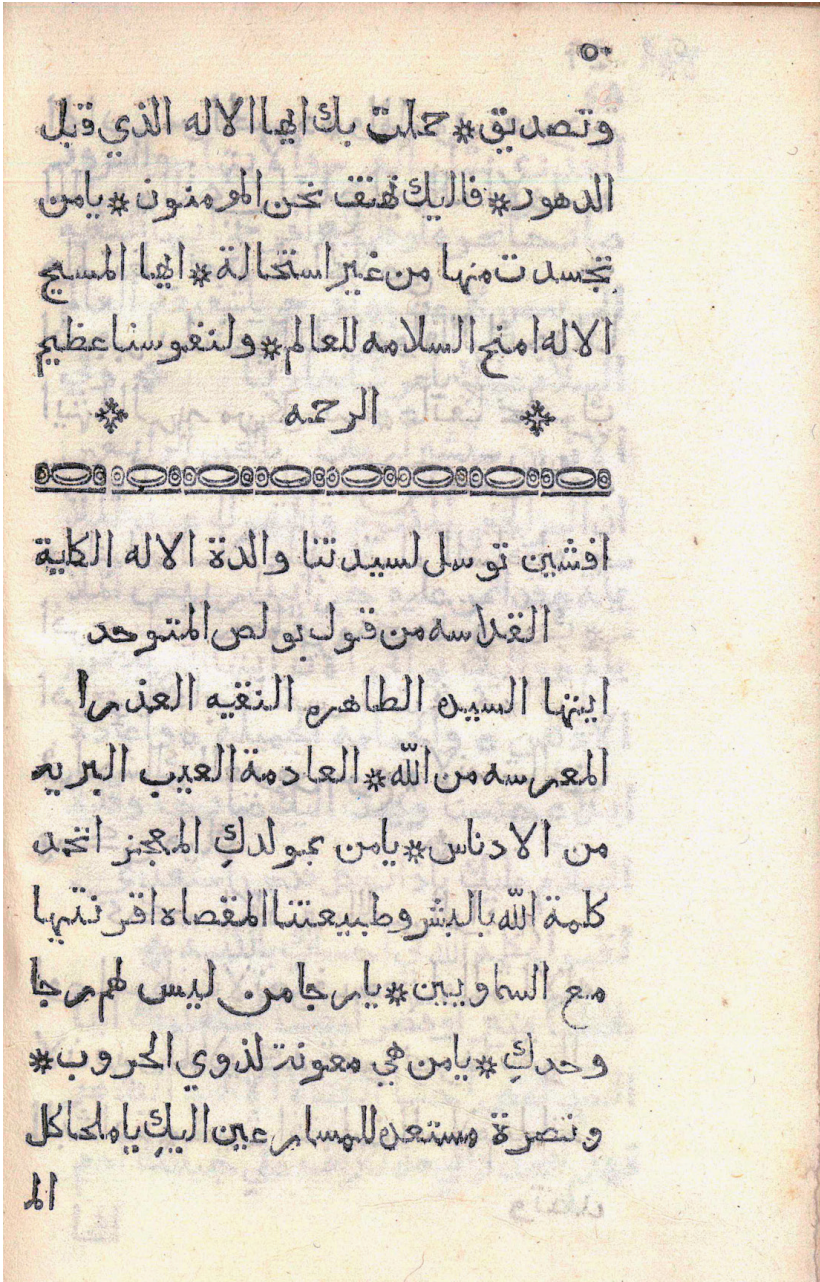 ٥٠
وتصديق * حملت بك ايها الاله الذي قبل
الدهور * فاليك نهتف نحن المومنون * يامن
تجسدت منها من غير استحالة * ايها المسيح
الاله امنح السلامه للعالم * ولنفوسنا عظيم
* الرحمه *
افشين توسل لسيدتنا والدة الاله الكلية
القداسه من قول بولص المتوحد
ايتها السيده الطاهره النقيه العذرا
المعرسه من الله * العادمة العيب البريه
من الادناس * يامن بمولدكِ المعجز اتحد
كلمة الله بالبشر وطبيعتنا المقصاه اقرنتيها
مع السماويين * يارجا من ليس لهم رجا
وحدكِ * يامن هي معونة لذوي الحروب *
ونصرة مستعده للمسارعين اليكِ ياملجا كل
الم